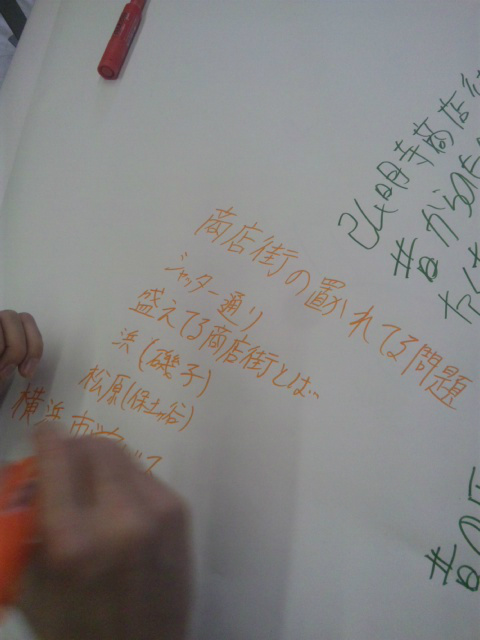 商店街の置かれてる問題
シャッター通り
盛えてる商店街とは…
浜(磯子)
松原(保土谷)
横浜市
弘明寺商店街
昔から
昔の